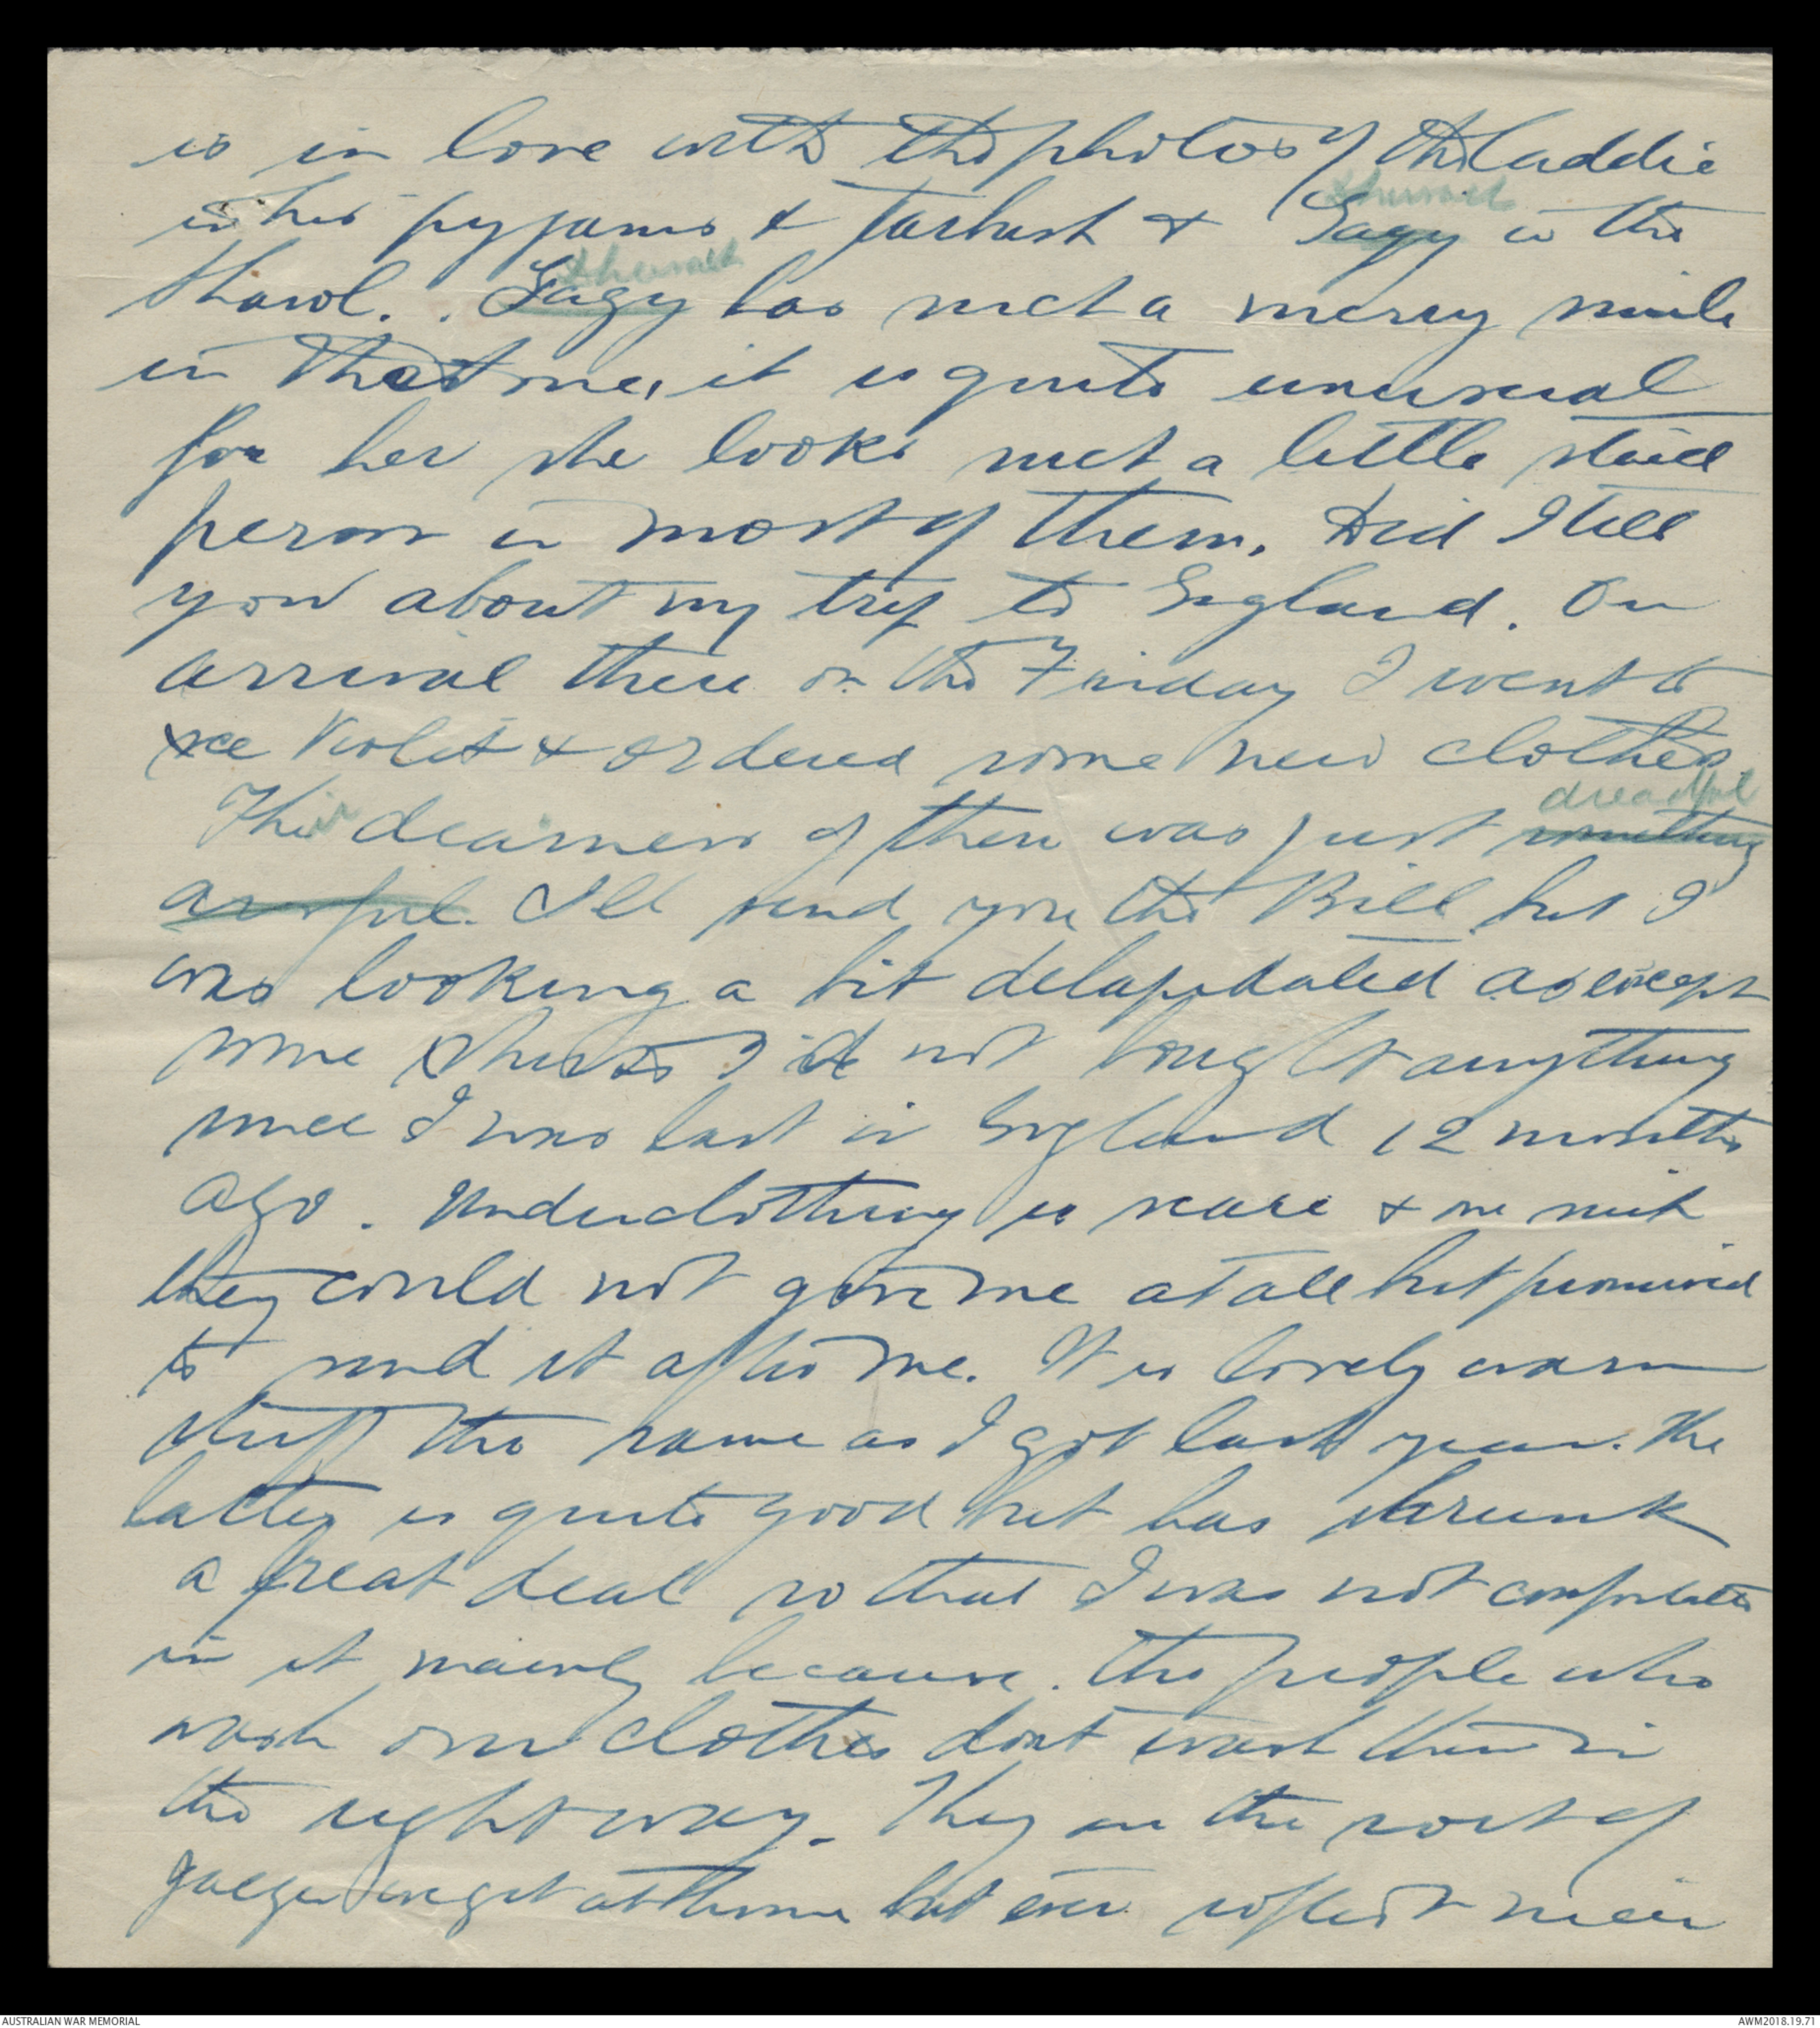 is in love with the photos of the laddie
in his pyjams & tarbush & Gagy in the
shawl. . Gagy has such a merry smile
in that one, it is quite unusual
for her she looks such a little staid
person in most of them. Did I tell
you about my trip to England. On
arrival there on the Friday I went to
see Violet & ordered some new clothes.
dreadful
Their dearness of them was just something
awful. I'll send you the Bill but I
was looking a bit delapidated as except
some shirts I'd not bought anything
since I was last in England 12 months
ago. Underclothing is scarce & one suit
they could not give me at all but promised
to send it after me. It is lovely warm
stuff the same as I got last year. The
latter is quite good but has shrunk
a great deal so that I was not comfortable
in it mainly because . the people who
wash our clothes dont wash them in
the right way. They are the sort of
Jaeger we get at home but ever softer & nicer
AUSTRALIAN WAR MEMORIAL
AWM2018.19.71